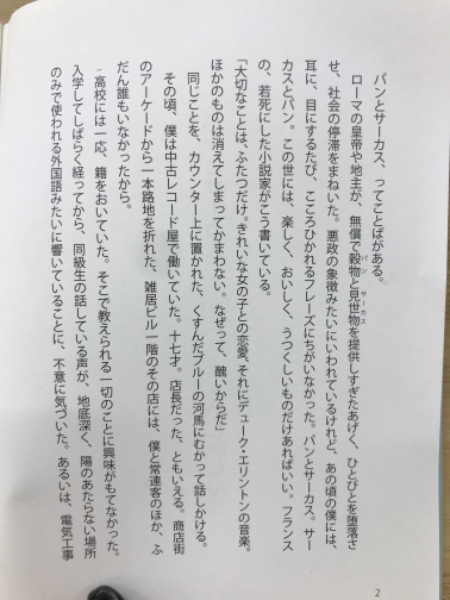 パンとサーカス、ってことばがある。
ローマの皇帝や地主が、無償で穀物と見世物を提供しすぎたあげく、ひとびとを堕落さ
パン サーカス
せ、社会の停滞をまねいた。悪政の象徴みたいにいわれているけれど、あの頃の僕には、
耳に、目にするたび、こころひかれるフレーズにちがいなかった。パンとサーカス。サー
カスとパン。この世には、楽しく、おいしく、うつくしいものだけあればいい。フランス
の、若死にした小説家がこう書いている。
「大切なことは、ふたつだけ。きれいな女の子との恋愛、それにデューク・エリントンの音楽。
ほかのものは消えてしまってかまわない。なぜって、醜いからだ」
同じことを、カウンター上に置かれた、くすんだブルーの河馬にむかって話しかける。
その頃、僕は中古レコード屋で働いていた。十七才。店長だった、ともいえる。商店街
のアーケードから一本路地を折れた、雑居ビル一階のその店には、僕と常連客のほか、ふ
だん誰もいなかったから。
高校には一応、籍をおいていた。そこで教えられる一切のことに興味がもてなかった。
入学してしばらく経ってから、同級生の話している声が、地底深く、陽のあたらない場所
のみで使われる外国語みたいに響いていることに、不意に気づいた。あるいは、電気工事
2